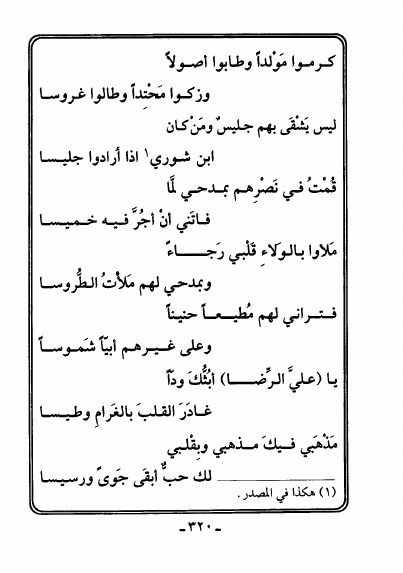 كـرمـوا مَوْلداً وطابوا أصـولاً
وزكـوا مَحْتِداً وطالوا غروسـا
ليس يَشْقَى بهم جليسٌ ومَنْ كان
ابن شوري١ اذا أرادوا جليسـا
قُمْتُ فـي نَصْرِهـم بمـدحـي لمَّا
فـاتَني أنْ أجُرَّ فيـه خـميـسا
مَلاوا بـالـولاءِ قَلْبي رَجـاءً
وبمدحي لهم مَلأتُ الـطُّروسـا
فـتـراني لهم مُطيـعـاً حنيناً
وعلى غـيـرهم أبيّاً شَموسـاً
يـا (عليَّ الـرِّضـا) أبُثُّكَ ودّاً
غـادَرَ القلبَ بالغَرامِ وطيـسا
مَذْهَبَي فـيـكَ مـذهبي وبِقْلـبي
لك حبٌّ أبقى جَوىً ورسيسا
(١) هكذا في المصدر.
ـ ٣٢٠ ـ